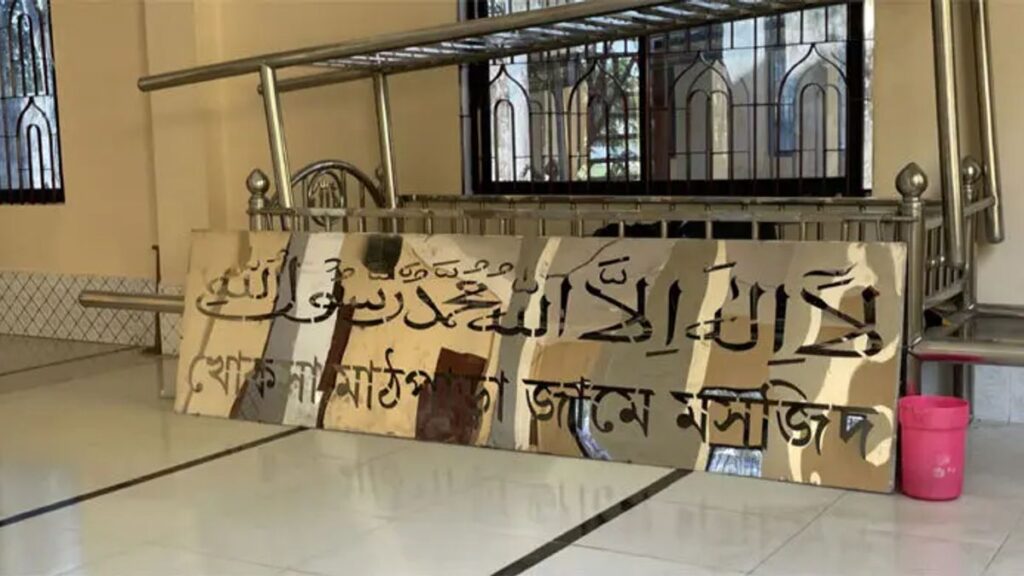 لَا اِلٰهَ اِلَّا اللهُ مُحَمَّدٌ رَّسُوْلُ اللهِ
খোকসা মাঠপাড়া জামে মসজিদ